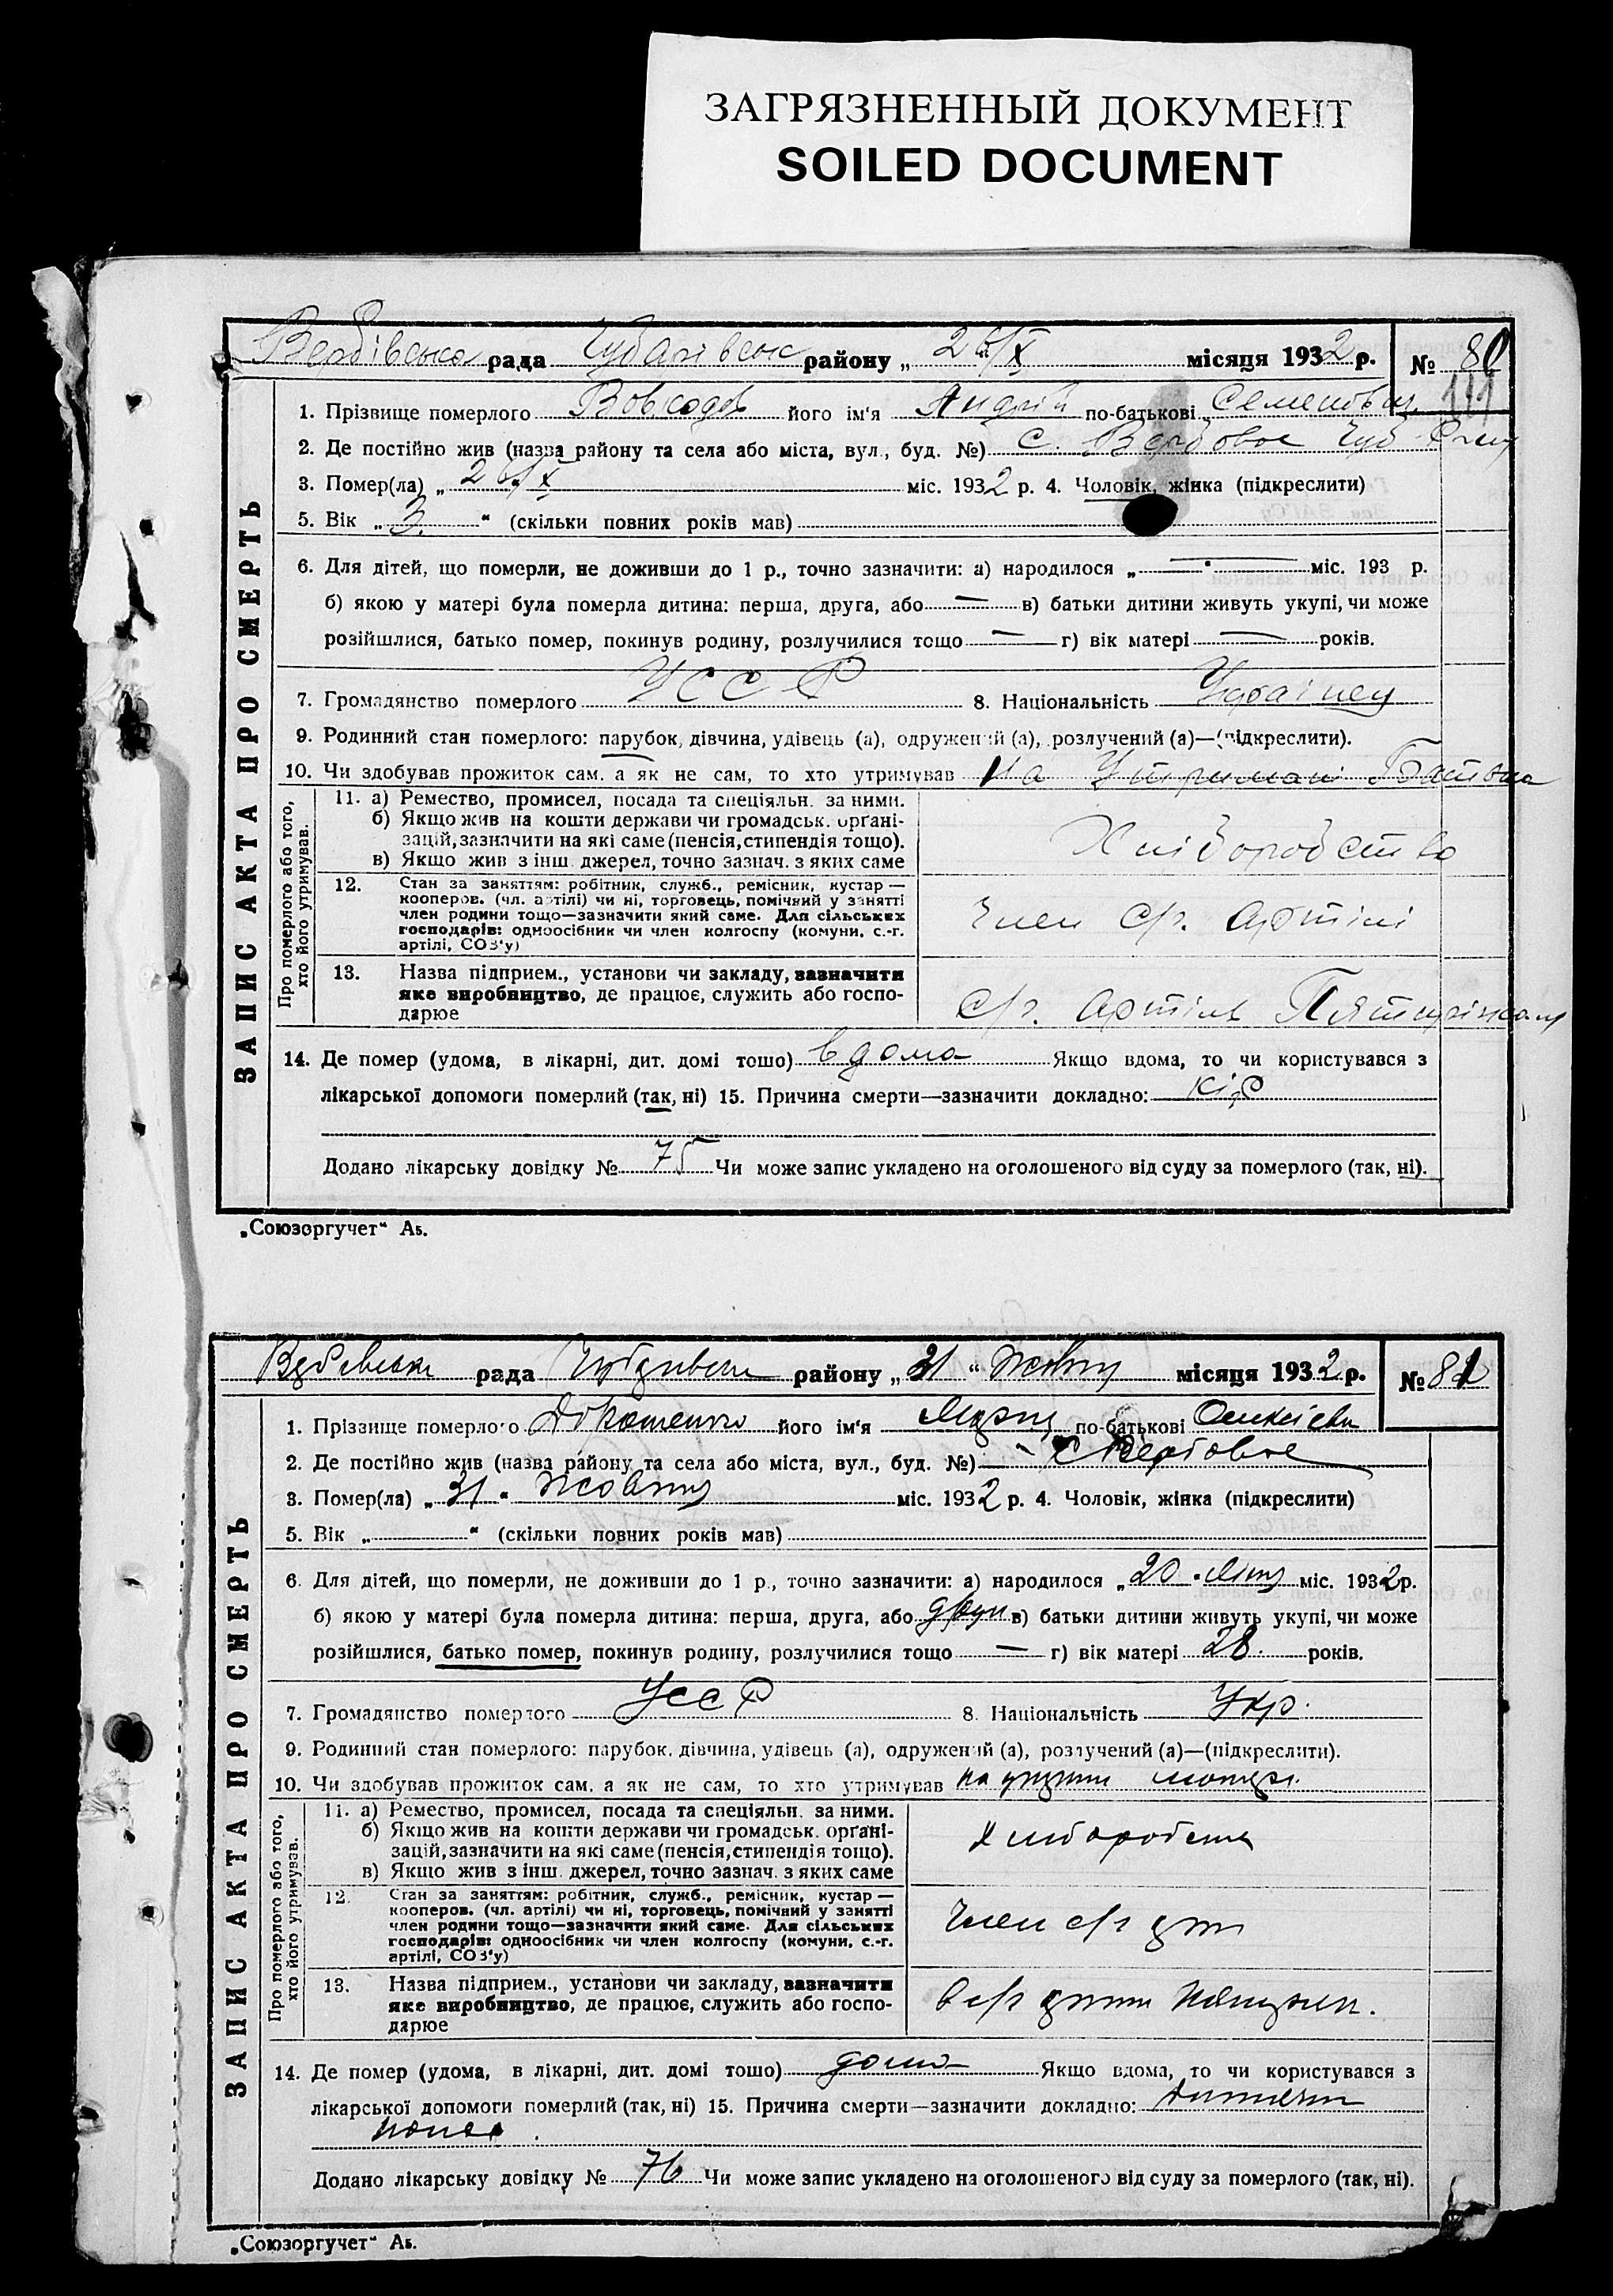 ЗАГРЯЗНЕННЫЙ ДОКУМЕНТ
SOILED DOCUMENT
Вербівська рада району „ 26/X місяця 1932 р. № 80
111
ЗАПИС АКТА ПРО СМЕРТЬ
1. Прізвище померлого його ім'я Андрій по-батькові Семенович
2. Де постійно жив (назва району та села або міста, вул., буд. №) с. Вербовое Чуб
3. Помер(ла) „ 26/X міс. 1932 р. 4. Чоловік, жінка (підкреслити)
5. Вік „ 3 “ (скільки повних років мав)
6. Для дітей, що померли, не доживши до 1 р., точно зазначити: а) народилося „ — міс. 193 р.
б) якою у матері була померла дитина: перша, друга, або — в) батьки дитини живуть укупі, чи може
розійшлися, батько помер, покинув родину, розлучилися тощо — г) вік матері — років.
7. Громадянство померлого УССР 8. Національність Українец
9. Родинний стан померлого: парубок, дівчина, удівець (а), одружений (а), розлучений (а)—(підкреслити).
10. Чи здобував прожиток сам, а як не сам, то хто утримував На Утримані Батька
Про померлого або того,
хто його утримував.
11. а) Ремество, промисел, посада та спеціяльн. за ними.
б) Якщо жив на кошти держави чи громадськ. орґані-
зацій, зазначити на які саме (пенсія, стипендія тощо).
в) Якщо жив з інш. джерел, точно зазнач. з яких саме
Хліборобство
12. Стан за заняттям: робітник, служб., ремісник, кустар —
кооперов. (чл. артілі) чи ні, торговець, помічний у занятті
член родини тощо—зазначити який саме. Для сільських
господарів: одноосібник чи член колгоспу (комуни, с.-г.
артілі, СОЗ'у)
Член с/г. артілі
13. Назва підприєм., установи чи закладу, зазначити
яке виробництво, де працює, служить або госпо-
дарює
С/г. Артіль
14. Де помер (удома, в лікарні, дит. домі тощо) вдома Якщо вдома, то чи користувався з
лікарської допомоги померлий (так, ні) 15. Причина смерти—зазначити докладно: кір
Додано лікарську довідку № 75 Чи може запис укладено на оголошеного від суду за померлого (так, ні).
„Союзоргучет“ А5.
рада району „ 31 “ Жовтня місяця 1932 р. № 81
ЗАПИС АКТА ПРО СМЕРТЬ
1. Прізвище померлого його ім'я по-батькові
2. Де постійно жив (назва району та села або міста, вул., буд. №) — с Вербовое
3. Помер(ла) „ 31 “ Жовтня міс. 1932 р. 4. Чоловік, жінка (підкреслити)
5. Вік „ “ (скільки повних років мав)
6. Для дітей, що померли, не доживши до 1 р., точно зазначити: а) народилося „ 20 міс. 1932 р.
б) якою у матері була померла дитина: перша, друга, або в) батьки дитини живуть укупі, чи може
розійшлися, батько помер, покинув родину, розлучилися тощо — г) вік матері 28 років.
7. Громадянство померлого УССР 8. Національність Укр.
9. Родинний стан померлого: парубок, дівчина, удівець (а), одружений (а), розлучений (а)—(підкреслити).
10. Чи здобував прожиток сам, а як не сам, то хто утримував на матері
Про померлого або того,
хто його утримував.
11. а) Ремество, промисел, посада та спеціяльн. за ними.
б) Якщо жив на кошти держави чи громадськ. орґані-
зацій, зазначити на які саме (пенсія, стипендія тощо).
в) Якщо жив з інш. джерел, точно зазнач. з яких саме
12. Стан за заняттям: робітник, служб., ремісник, кустар —
кооперов. (чл. артілі) чи ні, торговець, помічний у занятті
член родини тощо—зазначити який саме. Для сільських
господарів: одноосібник чи член колгоспу (комуни, с.-г.
артілі, СОЗ'у)
Член с/г арт
13. Назва підприєм., установи чи закладу, зазначити
яке виробництво, де працює, служить або госпо-
дарює
В с/г
14. Де помер (удома, в лікарні, дит. домі тощо) дома Якщо вдома, то чи користувався з
лікарської допомоги померлий (так, ні) 15. Причина смерти—зазначити докладно:
Додано лікарську довідку № 76 Чи може запис укладено на оголошеного від суду за померлого (так, ні).
„Союзоргучет“ А5.